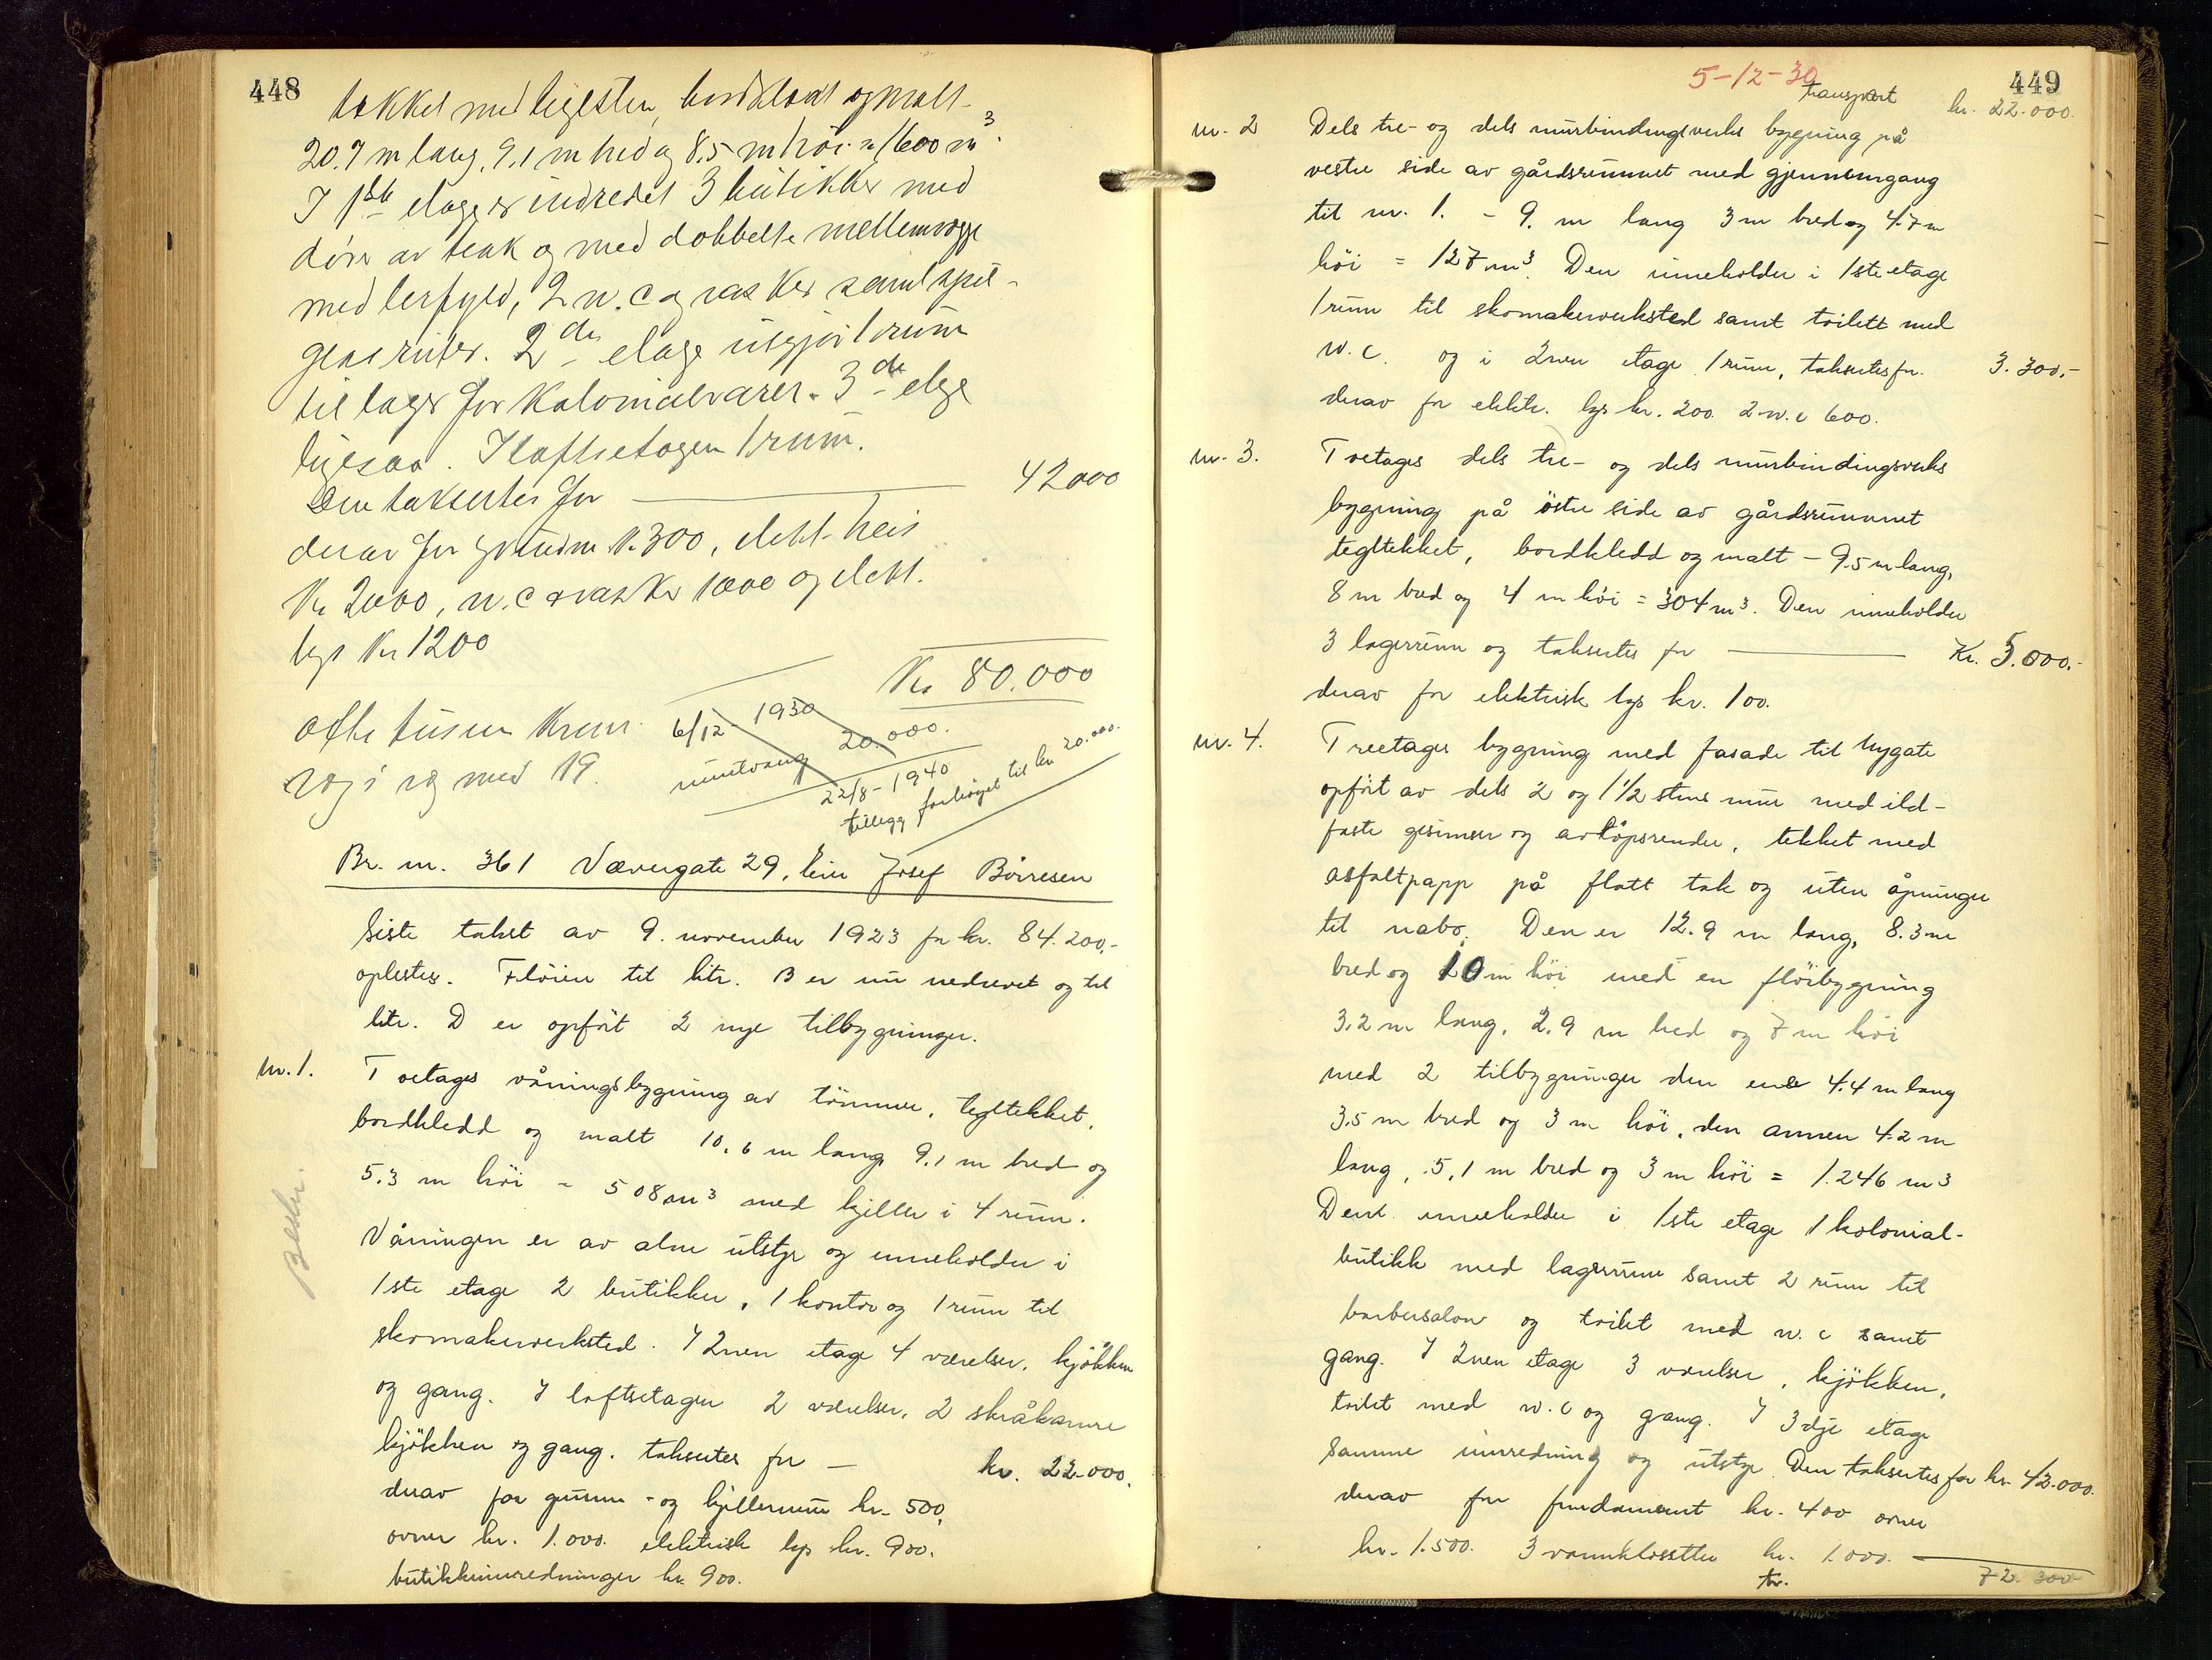 448
tækket med teglsten, bordklædt og malt
20.7 m lang, 9.1 m bred og 8.5 m höi = 1600 m³.
I 1ste etage er indredet 3 butikker med
döre av teak og med dobbelte mellemvægge
med lerfyld, 2 w.c og vasker samt speil-
glas ruter. 2den etage utgjör 1 rum
til lager for Kolonialvarer. 3de etage
ligesaa. I loftsetagen 1 rum.
Den taksertes for 42000
derav for grundm. K. 300, elekt. heis
Kr 2000, w.c & vasker 1000 og elekt.
lys Kr 1200
Kr 80.000
6/12 1930
20.000.
22/8 - 1940
tillegg forhöyet til kr 20.000.
Br. nr. 361 Værvergate 29, eier Josef Börresen
Siste takst av 9. november 1923 for kr. 84.200,-
oplestes. Flöien til litr. B er nu nedrevet og til
litr. D er opfört 2 nye tilbygninger.
nr. 1. Toetages våningsbygning av tömmer, tegltekket,
bordkledd og malt 10,6 m lang 9,1 m bred og
5.3 m höi = 508 m³ med kjeller i 4 rum.
Våningen er av alm utstyr og inneholder i
1ste etage 2 butikker, 1 kontor og 1 rum til
skomakerverksted. I 2nen etage 4 værelser, kjökken
og gang. I loftsetagen 2 værelser, 2 skråkamre
kjökken og gang. taksertes for — kr. 22.000.
derav for grunn- og kjellermur kr. 500,
ovner kr. 1.000. elektrisk lys kr. 900.
butikkinnredninger kr. 900.
449
5-12-30
transport kr. 22.000.
nr. 2 Dels tre- og dels murbindingsverks bygning på
vestre side av gårdsrummet med gjennemgang
til nr. 1. - 9. m lang 3 m bred og 4.7 m
höi = 127 m³. Den inneholder i 1ste etage
1 rum til skomakerverksted samt toilett med
w.c. og i 2nen etage 1 rum, taksertes for 3.300,-
derav for elektr. lys kr. 200 2 w.c 600.
nr. 3. Toetages dels tre- og dels murbindingsverks
bygning på östre side av gårdsrummet
tegltekket, bordkledd og malt - 9.5 m lang,
8 m bred og 4 m höi = 304 m³. Den inneholder
3 lagerrum og taksertes for Kr. 5.000.-
derav for elektrisk lys kr. 100.
nr. 4. Treetages bygning med fasade til Nygate
opfört av dels 2 og 1 1/2 stens mur med ild-
faste gesimser og avlöpsrender, tekket med
asfaltpapp på flatt tak og uten åpninger
til nabo. Den er 12.9 m lang, 8.3 m
bred og 10 m höi med en flöibygning
3.2 m lang, 2.9 m bred og 7 m höi
med 2 tilbygninger den ene 4.4 m lang
3.5 m bred og 3 m höi, den annen 4.2 m
lang, 5,1 m bred og 3 m höi = 1.246 m³
Den inneholder i 1ste etage 1 kolonial-
butikk med lagerrum samt 2 rum til
barbersalon og toilet med w.c samt
gang. I 2nen etage 3 værelser, kjökken,
toilet med w.c og gang. I 3dje etage
samme innredning og utstyr. Den taksertes for kr. 42.000.
derav for fundament kr. 400 ovner
kr. 1.500. 3 vannklosetter kr. 1.000.
tr. 72.300